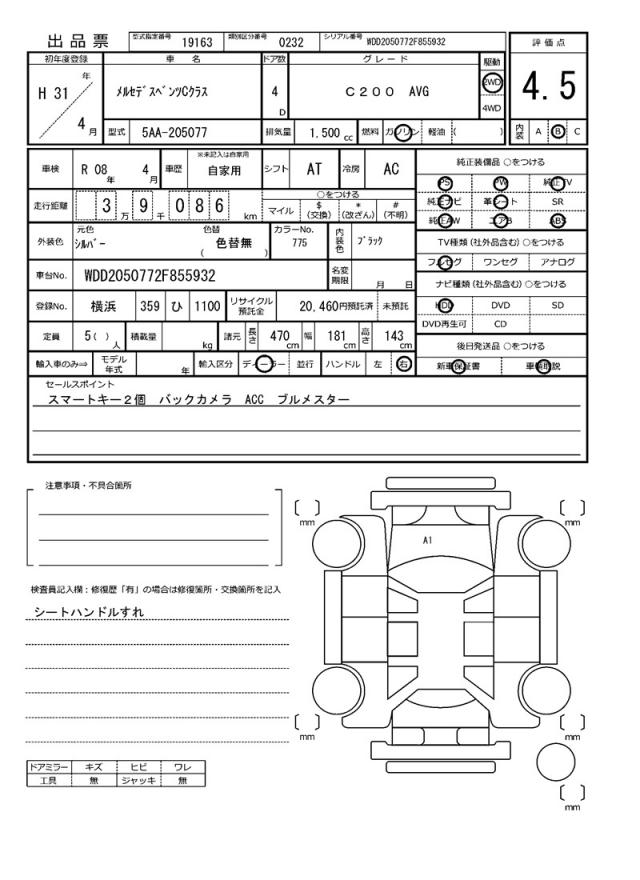 出品票 型式指定番号 19163 類別区分番号 0232 シリアル番号 WDD2050772F855932
評価点
4.5
内装 A B C
初年度登録 車名 ドア数 グレード 駆動
H 31 年 4 月
メルセデスベンツCクラス 4 D C200 AVG 2WD
4WD
型式 5AA-205077 排気量 1.500 cc 燃料 ガソリン 軽油 ( )
車検 R 08 年 4 月 車歴 ※未記入は自家用 自家用 シフト AT 冷房 AC
走行距離 3 万 9 千 0 8 6 km ○をつける
マイル $ (交換) * (改ざん) # (不明)
外装色 元色 シルバー 色替 色替無 ( ) カラーNo. 775 内装色 ブラック
車台No. WDD2050772F855932 名変期限 月 日
登録No. 横浜 359 ひ 1100 リサイクル預託金 20,460円預託済 未預託
定員 5( ) 人 積載量 kg 諸元 長さ 470 cm 幅 181 cm 高さ 143 cm
輸入車のみ⇒ モデル年式 年 輸入区分 ディーラー 並行 ハンドル 左 右
純正装備品 ○をつける
PS PW 純正TV
純正ナビ 革シート SR
純正AW エアB ABS
TV種類 (社外品含む) ○をつける
フルセグ ワンセグ アナログ
ナビ種類 (社外品含む) ○をつける
HDD DVD SD
DVD再生可 CD
後日発送品 ○をつける
新車保証書 車輌取説
セールスポイント
スマートキー2個 バックカメラ ACC ブルメスター
注意事項・不具合箇所
検査員記入欄：修復歴「有」の場合は修復箇所・交換箇所を記入
シートハンドルすれ
ドアミラー キズ ヒビ ワレ
工具 無 ジャッキ 無
mm
mm
A1
mm
mm
mm